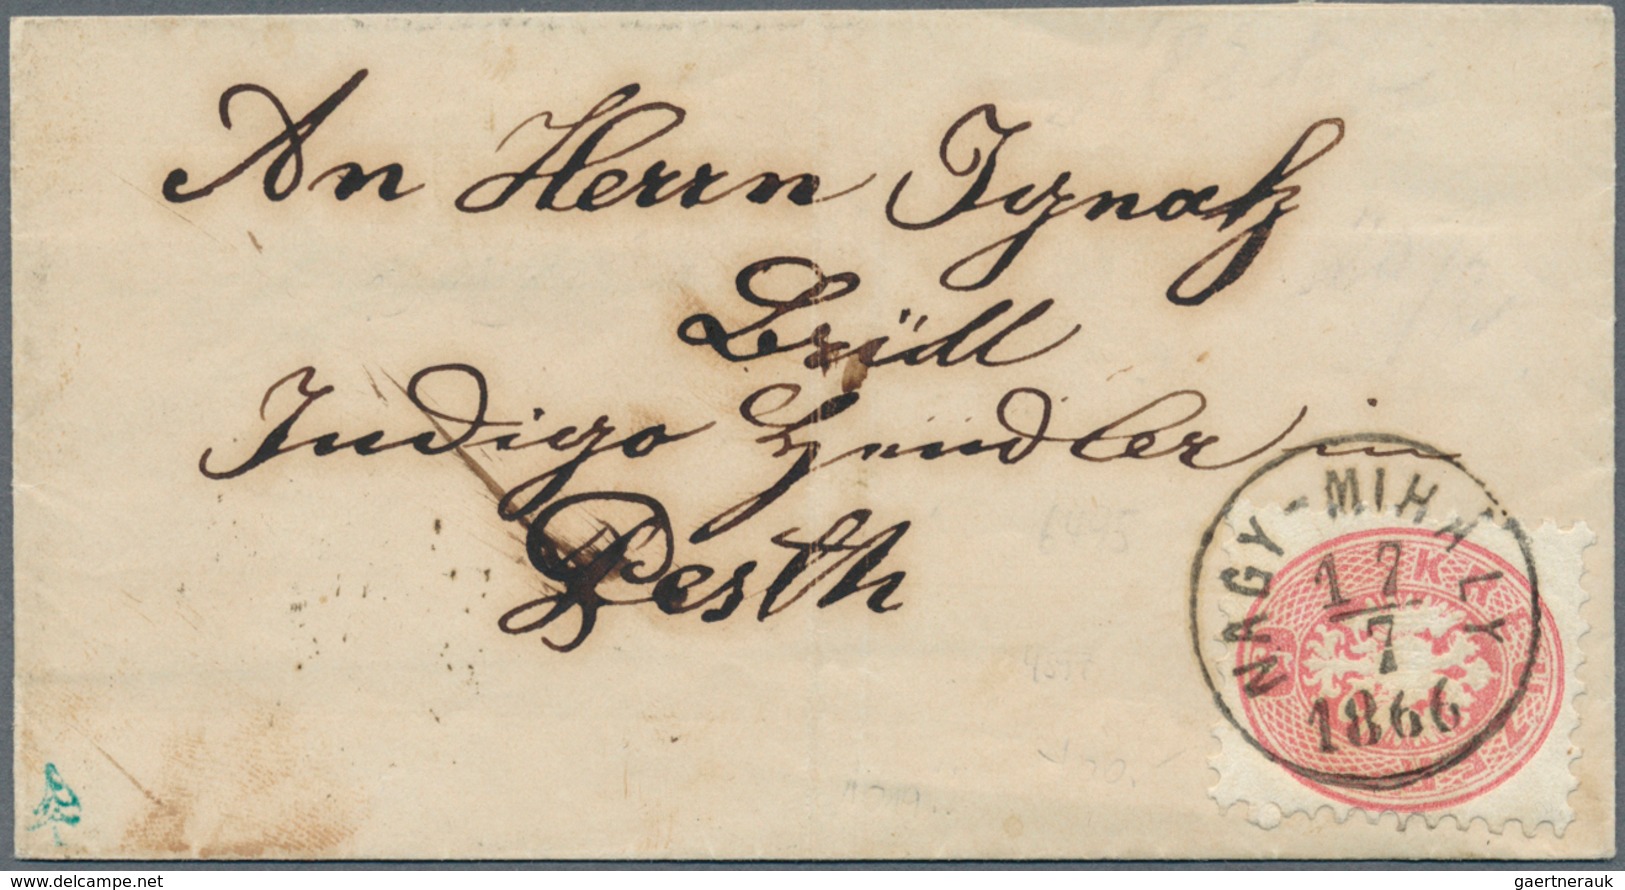 An Herrn Ignatz
Brüll
Indigo Hendler in
Pesth
NAGY-MIHÁLY
17
7
1866
6495
www.delcampe.net
gaertnerauk